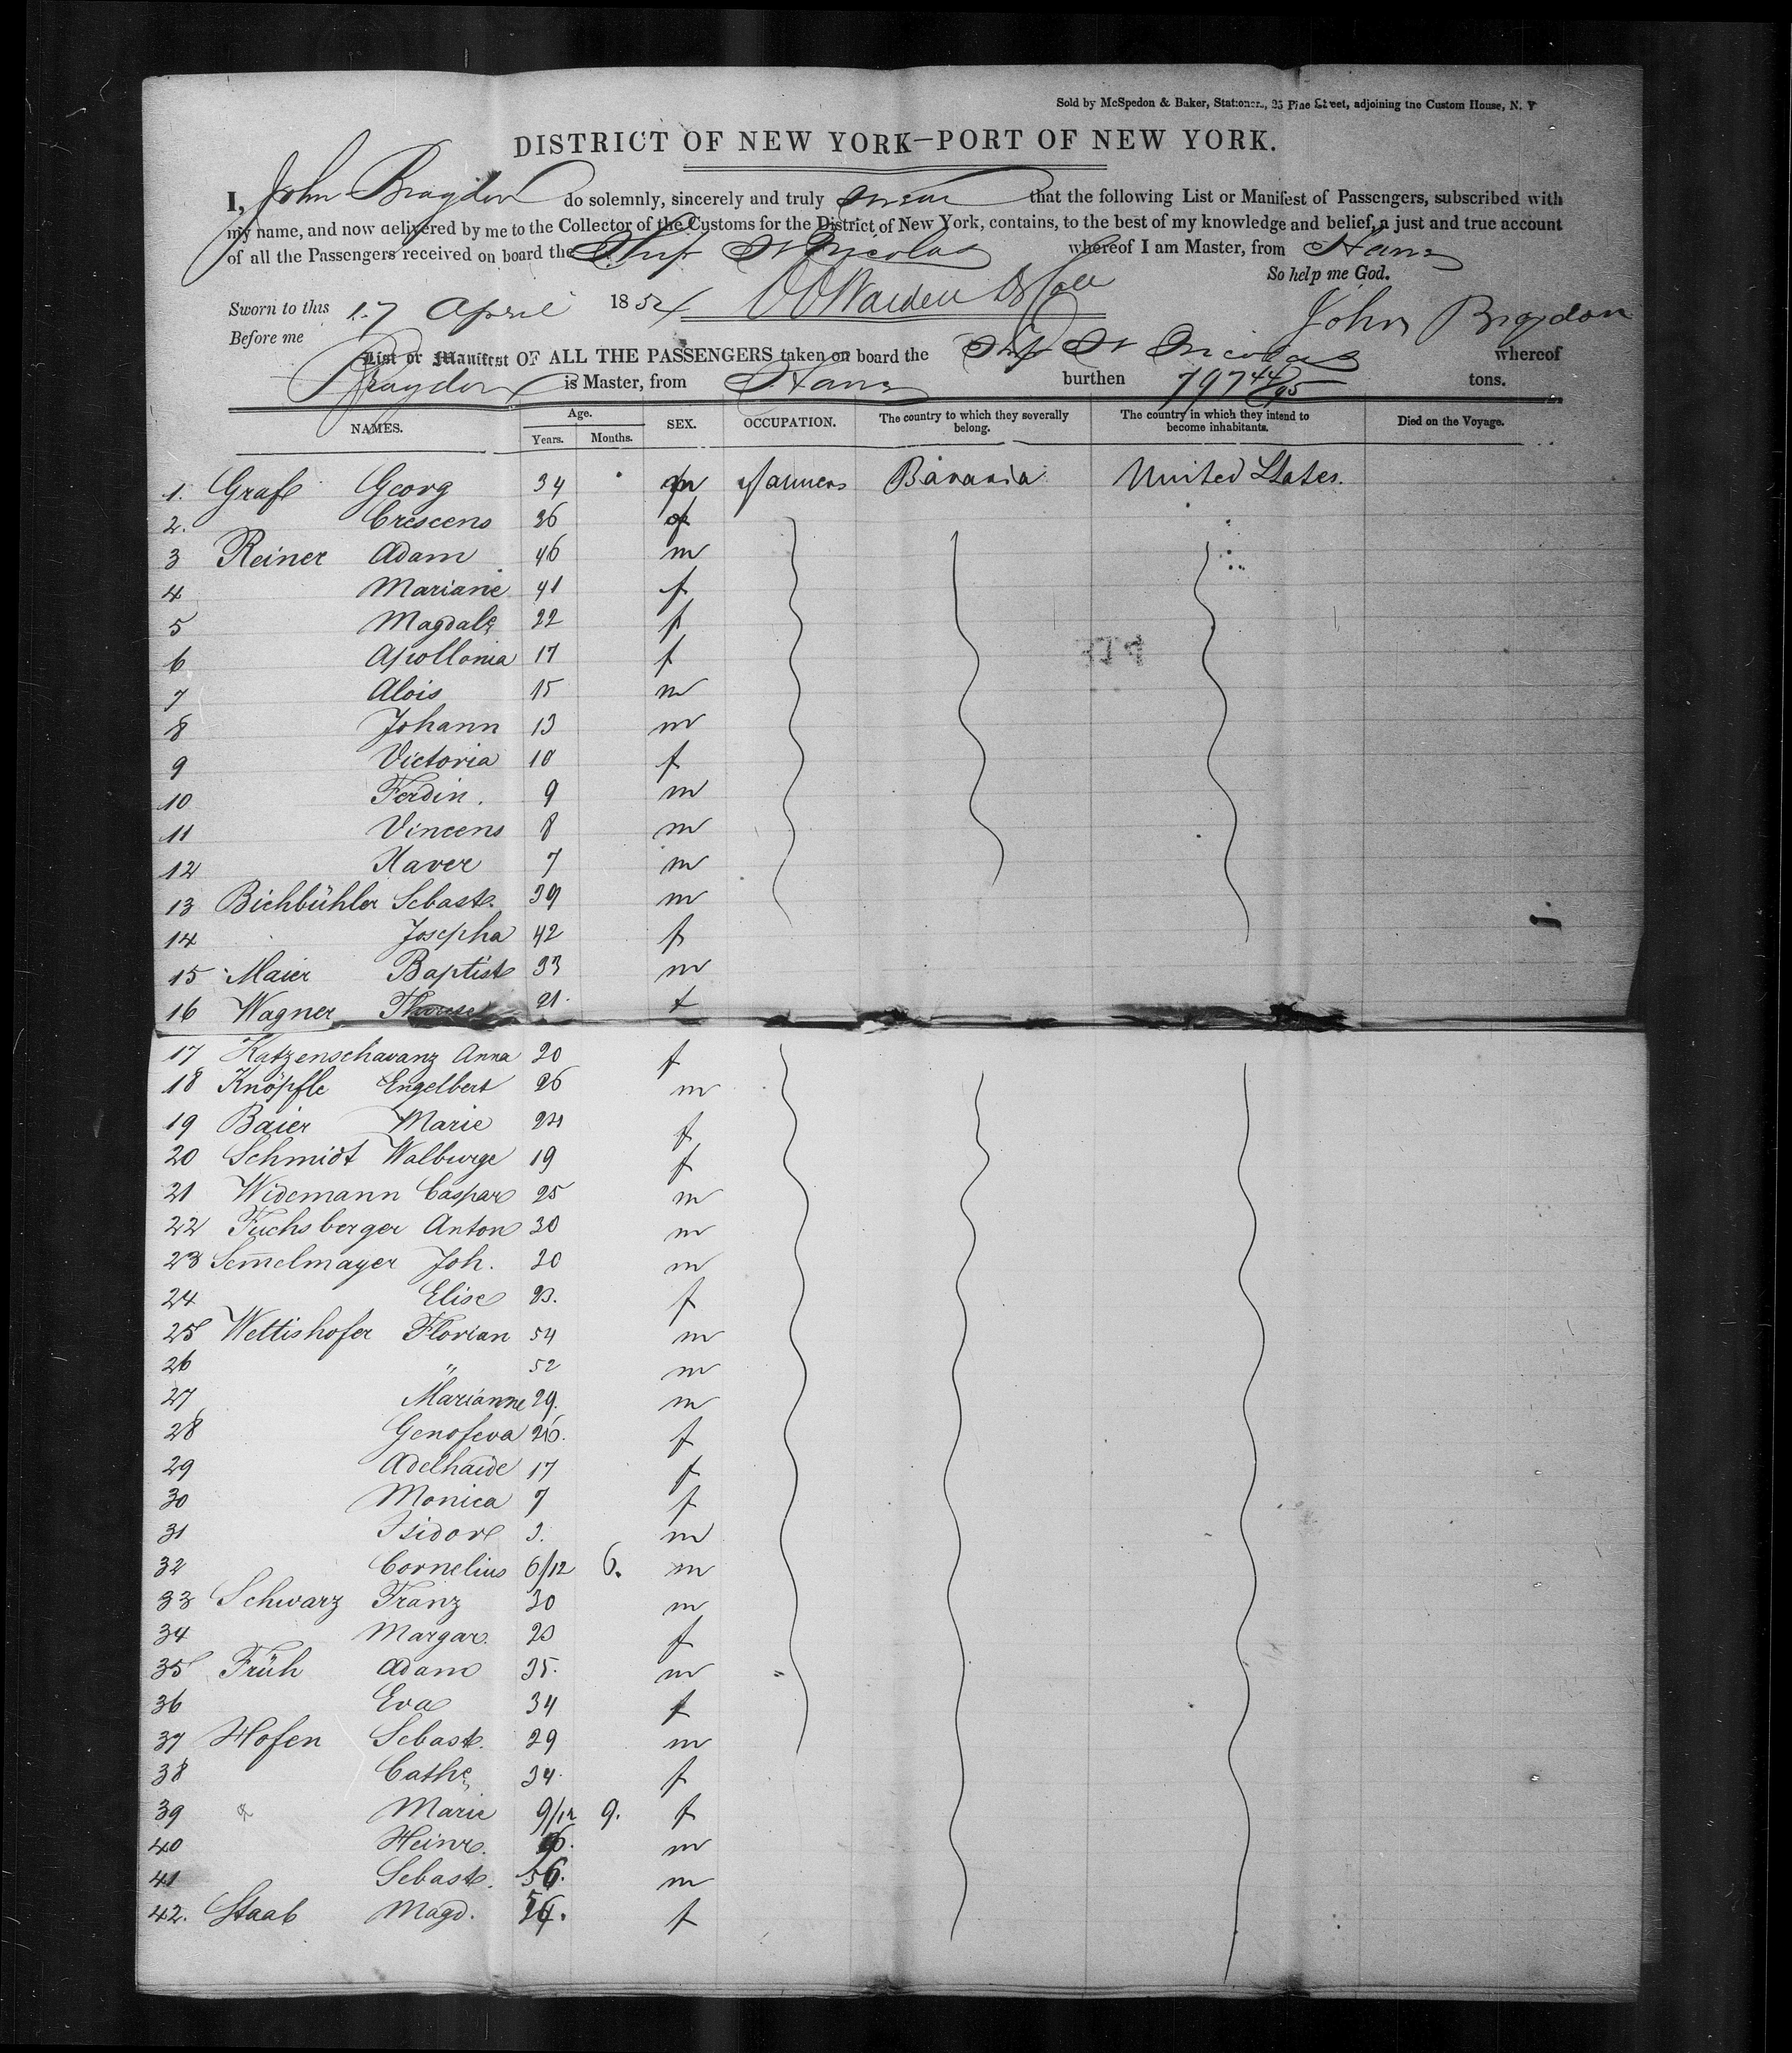 Sold by McSpedon & Baker, Stationers, 25 Pine Street, adjoining the Custom House, N. Y
DISTRICT OF NEW YORK—PORT OF NEW YORK.
I, John Bragdon do solemnly, sincerely and truly swear that the following List or Manifest of Passengers, subscribed with
my name, and now delivered by me to the Collector of the Customs for the District of New York, contains, to the best of my knowledge and belief, a just and true account
of all the Passengers received on board the Ship St Nicolas whereof I am Master, from Havre
So help me God.
Sworn to this 17 April 1854
Before me
John Bragdon
List or Manifest OF ALL THE PASSENGERS taken on board the Ship St Nicolas whereof
Bragdon is Master, from Havre burthen 797 44/95 tons.
NAMES. Age. Years. Months. SEX. OCCUPATION. The country to which they severally belong. The country in which they intend to become inhabitants. Died on the Voyage.
1. Grafe Georg 34 m farmers Bavaria United States.
2. Crescens 26 f
3 Reiner Adam 46 m
4 Mariane 41 f
5 Magdale 22 f
6 Apollonia 17 f
7 Alois 15 m
8 Johann 13 m
9 Victoria 10 f
10 Ferdin. 9 m
11 Vincens 8 m
12 Xaver 7 m
13 Bichbühler Sebast. 39 m
14 Josepha 42 f
15 Maier Baptist 33 m
16 Wagner 21. f
17 Katzenschwanz Anna 20 f
18 Knöpfle Engelbert 26 m
19 Baier Marie 24 f
20 Schmidt Walburge 19 f
21 Widemann Caspar 25 m
22 Fuchsberger Anton 30 m
23 Sem̅elmayer Joh. 30 m
24 Elise 23. f
25 Wettishofer Florian 54 m
26 " 52 m
27 Marianne 29. m
28 Genofeva 26. f
29 Adelhaide 17 f
30 Monica 7 f
31 Isidore 3. m
32 Cornelius 6/12 6. m
33 Schwarz Franz 30 m
34 Margar. 20 f
35 Früh Adam 35. m
36 Eva 34 f
37 Hofen Sebast. 29 m
38 Cathe 34. f
39 Marie 9/12 9. f
40 Heinr. m
41 Sebast. 56. m
42. Staab Magd. f